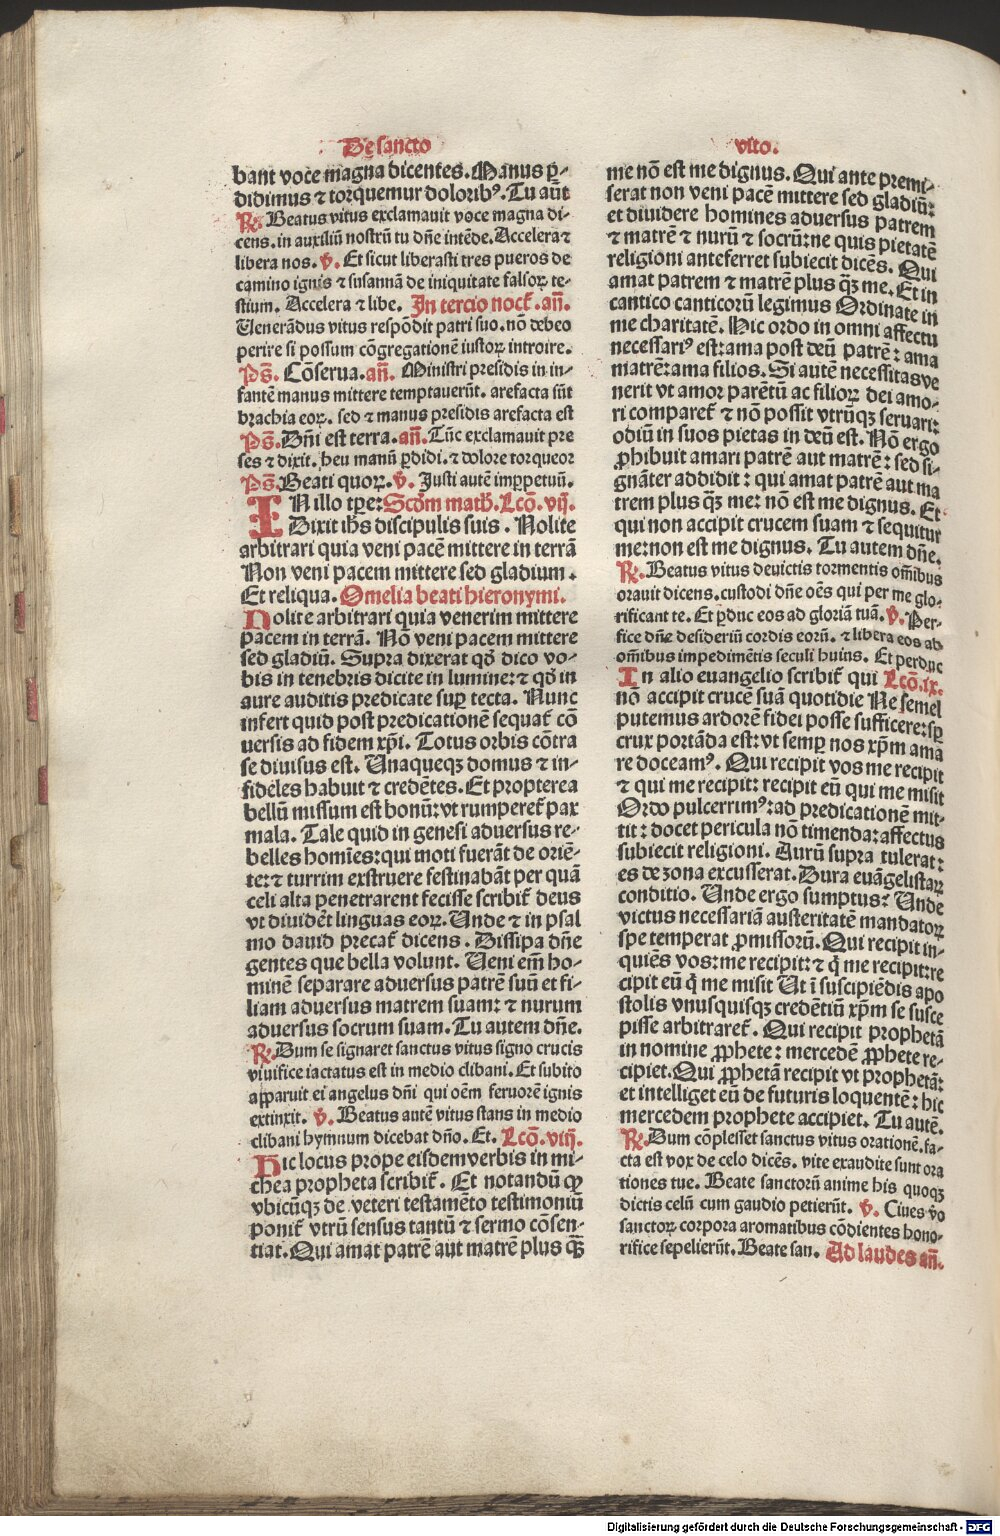 De sancto
bant voce magna dicentes. Manus ꝑ-
didimus ⁊ torquemur dolorib⁹. Tu aūt
℟. Beatus vitus exclamauit voce magna di-
cens. in auxiliū nostrū tu dn̄e intēde. Accelera ⁊
libera nos. ℣. Et sicut liberasti tres pueros de
camino ignis ⁊ susannā de iniquitate falsoꝝ te-
stium. Accelera ⁊ libe. In tercio noct̄. an̄.
Uenerādus vitus respōdit patri suo. nō debeo
perire si possum cōgregationē iustoꝝ introire.
Ps̄. Cōserua. an̄. Ministri presidis in in-
fantē manus mittere temptauerūt. arefacta sūt
brachia eoꝝ. sed ⁊ manus presidis arefacta est
Ps̄. Dn̄i est terra. an̄. Tūc exclamauit pre
ses ⁊ dixit. heu manū ꝑdidi. ⁊ dolore torqueor
Ps̄. Beati quoꝝ. ℣. Justi autē imꝑpetuū.
IN illo tp̄e: Scd̄m math̄. Lcō. vij.
Dixit ih̄s discipulis suis. Nolite
arbitrari quia veni pacē mittere in terrā
Non veni pacem mittere sed gladium.
Et reliqua. Omelia beati hieronymi.
Nolite arbitrari quia venerim mittere
pacem in terrā. Nō veni pacem mittere
sed gladiū. Supra dixerat qd̄ dico vo-
bis in tenebris dicite in lumine: ⁊ qd̄ in
aure auditis predicate suꝑ tecta. Nunc
infert quid post predicationē sequat̄ cō
uersis ad fidem xp̄i. Totus orbis cōtra
se diuisus est. Unaqueqꝫ domus ⁊ in-
fideles habuit ⁊ credētes. Et propterea
bellū missum est bonū: vt rumperet̄ pax
mala. Tale quid in genesi aduersus re-
belles homīes: qui moti fuerāt de oriē-
te: ⁊ turrim exstruere festinabāt per quā
celi alta penetrarent fecisse scribit̄ deus
vt diuidēt linguas eoꝝ. Unde ⁊ in psal
mo dauid precat̄ dicens. Dissipa dn̄e
gentes que bella volunt. Ueni em̄ ho-
minē separare aduersus patrē suū et fi-
liam aduersus matrem suam: ⁊ nurum
aduersus socrum suam. Tu autem dn̄e.
℟. Dum se signaret sanctus vitus signo crucis
viuifice iactatus est in medio clibani. Et subito
apparuit ei angelus dn̄i qui oēm feruorē ignis
extinxit. ℣. Beatus autē vitus stans in medio
clibani hymnum dicebat dn̄o. Et. Lcō. viij.
Hic locus prope eisdem verbis in mi-
chea propheta scribit̄. Et notandū qꝫ
vbicūqꝫ de veteri testamēto testimoniū
ponit̄ vtrū sensus tantū ⁊ sermo cōsen-
tiat. Qui amat patrē aut matrē plus qꝫ̄
vito.
me nō est me dignus. Qui ante premi-
serat non veni pacē mittere sed gladiū:
et diuidere homines aduersus patrem
⁊ matrē ⁊ nurū ⁊ socrū: ne quis pietatē
religioni anteferret subiecit dicēs. Qui
amat patrem ⁊ matrē plus qꝫ̄ me. Et in
cantico canticorū legimus Ordinate in
me charitatē. Hic ordo in omni affectu
necessari⁹ est: ama post deū patrē: ama
matrē: ama filios. Si autē necessitas ve
nerit vt amor parētū ac filioꝝ dei amo-
ri comparet̄ ⁊ nō possit vtrūqꝫ seruari:
odiū in suos pietas in deū est. Nō ergo
ꝓhibuit amari patrē aut matrē: sed si-
gnāter addidit: qui amat patrē aut ma
trem plus qꝫ̄ me: nō est me dignus. Et
qui non accipit crucem suam ⁊ sequitur
me: non est me dignus. Tu autem dn̄e.
℟. Beatus vitus deuictis tormentis om̄ibus
orauit dicens. custodi dn̄e oēs qui per me glo-
rificant te. Et ꝑduc eos ad gloriā tuā. ℣. Per-
fice dn̄e desideriū cordis eorū. ⁊ libera eos ab
om̄ibus impedimētis seculi huius. Et perduc
In alio euangelio scribit̄ qui Lcō. ix.
nō accipit crucē suā quotidie Ne semel
putemus ardorē fidei posse sufficere: sꝑ
crux portāda est: vt semꝑ nos xp̄m ama
re doceam⁹. Qui recipit vos me recipit
⁊ qui me recipit: recipit eū qui me misit
Ordo pulcerrim⁹: ad predicationē mit-
tit: docet pericula nō timenda: affectus
subiecit religioni. Aurū supra tulerat:
es de zona excusserat. Dura euāgelistaꝝ
conditio. Unde ergo sumptus? Unde
victus necessariā austeritatē mandatoꝝ
spe temperat ꝓmissorū. Qui recipit in-
quiēs vos: me recipit: ⁊ q̇ me recipit: re
cipit eū q̇ me misit Ut ī suscipiēdis apo
stolis vnusquisqꝫ credētiū xp̄m se susce
pisse arbitraret̄. Qui recipit prophetā
in nomine ꝓphete: mercedē ꝓphete re-
cipiet. Qui ꝓphetā recipit vt prophetā:
et intelliget eū de futuris loquentē: hic
mercedem prophete accipiet. Tu autē.
℟. Dum cōplesset sanctus vitus orationē. fa-
cta est vox de celo dicēs. vite exaudite sunt ora
tiones tue. Beate sanctorū anime his quoqꝫ
dictis celū cum gaudio petierūt. ℣. Ciues v̄o
sanctoꝝ corpora aromatibus cōdientes hono-
rifice sepelierūt. Beate san. Ad laudes an̄.
Digitalisierung gefördert durch die Deutsche Forschungsgemeinschaft - DFG